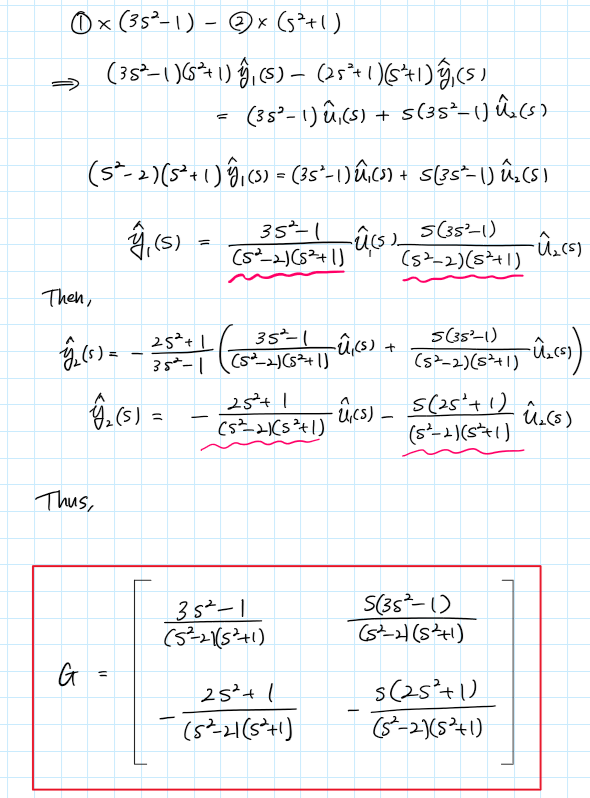 ① × (3s²-1) - ② × (s²+1)
⇒ (3s²-1)(s²+1) ŷ₁(s) - (2s²+1)(s²+1) ŷ₁(s)
= (3s²-1) û₁(s) + s(3s²-1) û₂(s)
(s²-2)(s²+1) ŷ₁(s) = (3s²-1) û₁(s) + s(3s²-1) û₂(s)
ŷ₁(s) = (3s²-1)/((s²-2)(s²+1)) û₁(s) s(3s²-1)/((s²-2)(s²+1)) û₂(s)
Then,
ŷ₂(s) = - (2s²+1)/(3s²-1) ( (3s²-1)/((s²-2)(s²+1)) û₁(s) + s(3s²-1)/((s²-2)(s²+1)) û₂(s) )
ŷ₂(s) = - (2s²+1)/((s²-2)(s²+1)) û₁(s) - s(2s²+1)/((s²-2)(s²+1)) û₂(s)
Thus,
G = [ (3s²-1)/((s²-2)(s²+1)) s(3s²-1)/((s²-2)(s²+1))
- (2s²+1)/((s²-2)(s²+1)) - s(2s²+1)/((s²-2)(s²+1)) ]